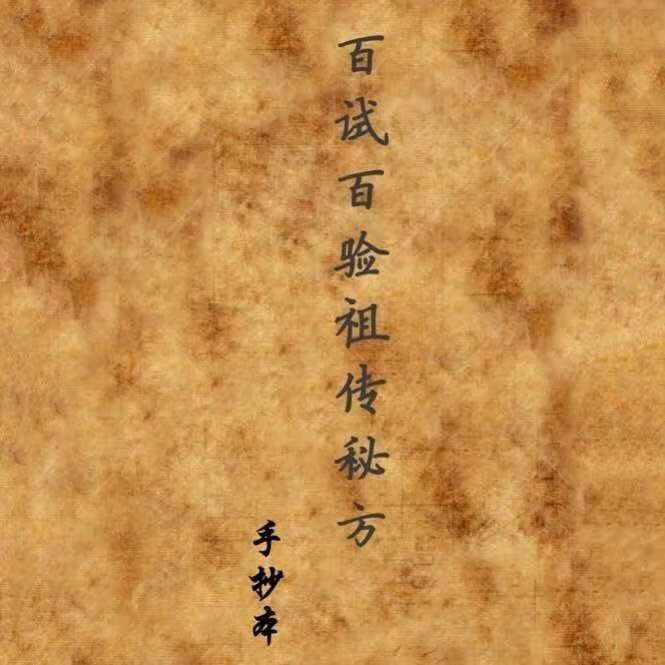 百试百验祖传秘方
手抄本